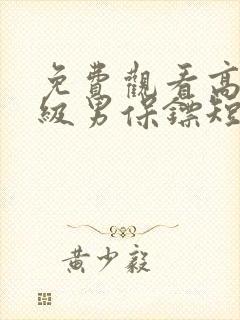 免費觀看高
級男保鏢短
黃少毅